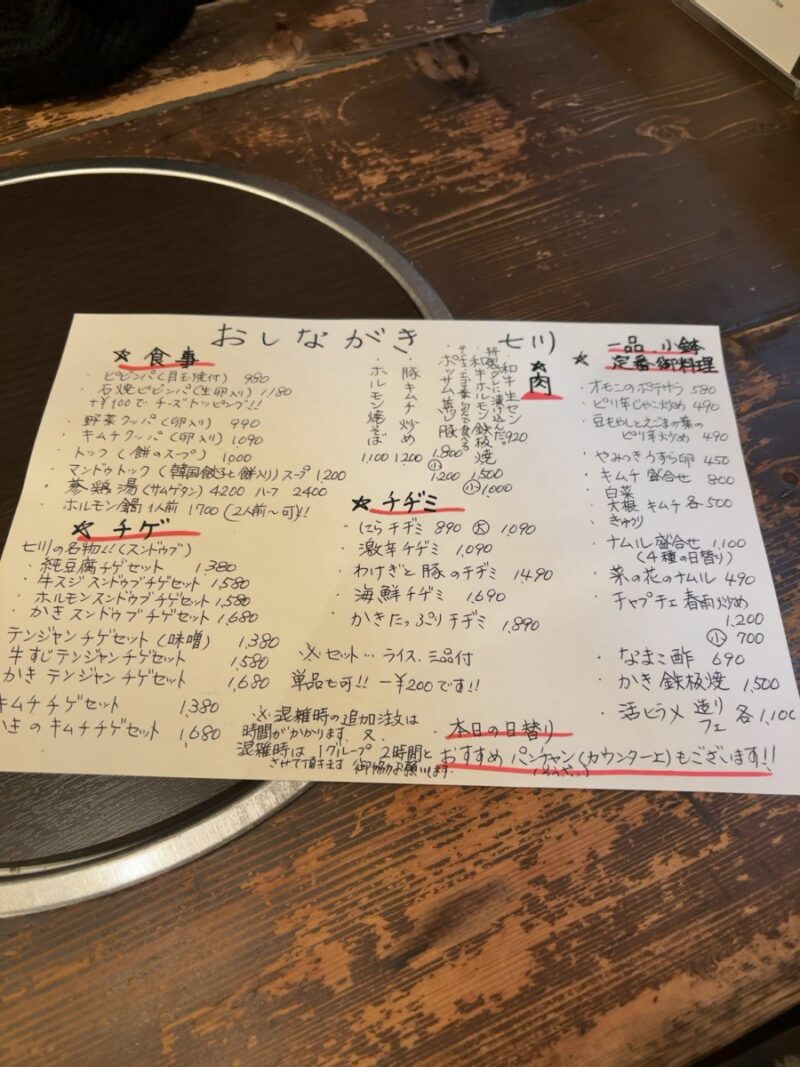 おしながき 七川
☆食事
・ビビンバ(目玉焼付) 980
・石焼ビビンバ(生卵入り) 1,180
+¥100で チーズトッピング!!
・野菜クッパ(卵入り) 990
・キムチクッパ(卵入り) 1090
・トック(餅のスープ) 1000
・マンドゥトック(韓国餃子と餅入り)スープ 1200
・蔘鶏湯(サムゲタン) 4200 ハーフ 2400
・ホルモン鍋 1人前 1700 (2人前〜可)!!
☆チゲ
七川の名物!!(スンドゥブ)
・純豆腐チゲセット 1,380
・牛スジスンドゥブチゲセット 1,580
・ホルモンスンドゥブチゲセット 1,580
・かきスンドゥブチゲセット 1,680
テンジャンチゲセット(味噌) 1,380
牛すじテンジャンチゲセット 1,580
かきテンジャンチゲセット 1,680
キムチチゲセット 1,380
かきのキムチチゲセット 1,680
☆肉
・和牛生セン 920
特製ダレに漬け込んだ。
・和牛ホルモン鉄板焼 1,500
小 1000
・ポッサム蒸し豚 1,800
小 1200
・豚キムチ炒め 1200
・ホルモン焼そば 1,100
☆チヂミ
・にらチヂミ 890 大 1,090
・激辛チヂミ 1,090
・わけぎと豚のチヂミ 1490
・海鮮チヂミ 1,690
・かきたっぷりチヂミ 1,890
※セット… ライス、三品付
単品も可!! 一¥200です!!
※混雑時の追加注文は
時間がかかります。又
混雑時は1グループ 2時間と
させて頂きます 御協力お願いします。
☆一品、小鉢
定番御料理
・オモニのポテサラ 580
・ピリ辛じゃこ炒め 490
・豆もやしとえごまの葉の
ピリ辛炒め 490
・やみつきうずら卵 450
・キムチ盛合せ 800
・白菜
大根 キムチ各500
・きゅうり
・ナムル盛合せ 1,100
(4種の日替り)
・菜の花のナムル 490
・チャプチェ 春雨炒め
1,200
小 700
・なまこ酢 690
・かき鉄板焼 1,500
・活ヒラメ 造り
フェ 各1,100
本日の日替り
おすすめ パンチャン(カウンター上)もございます!!